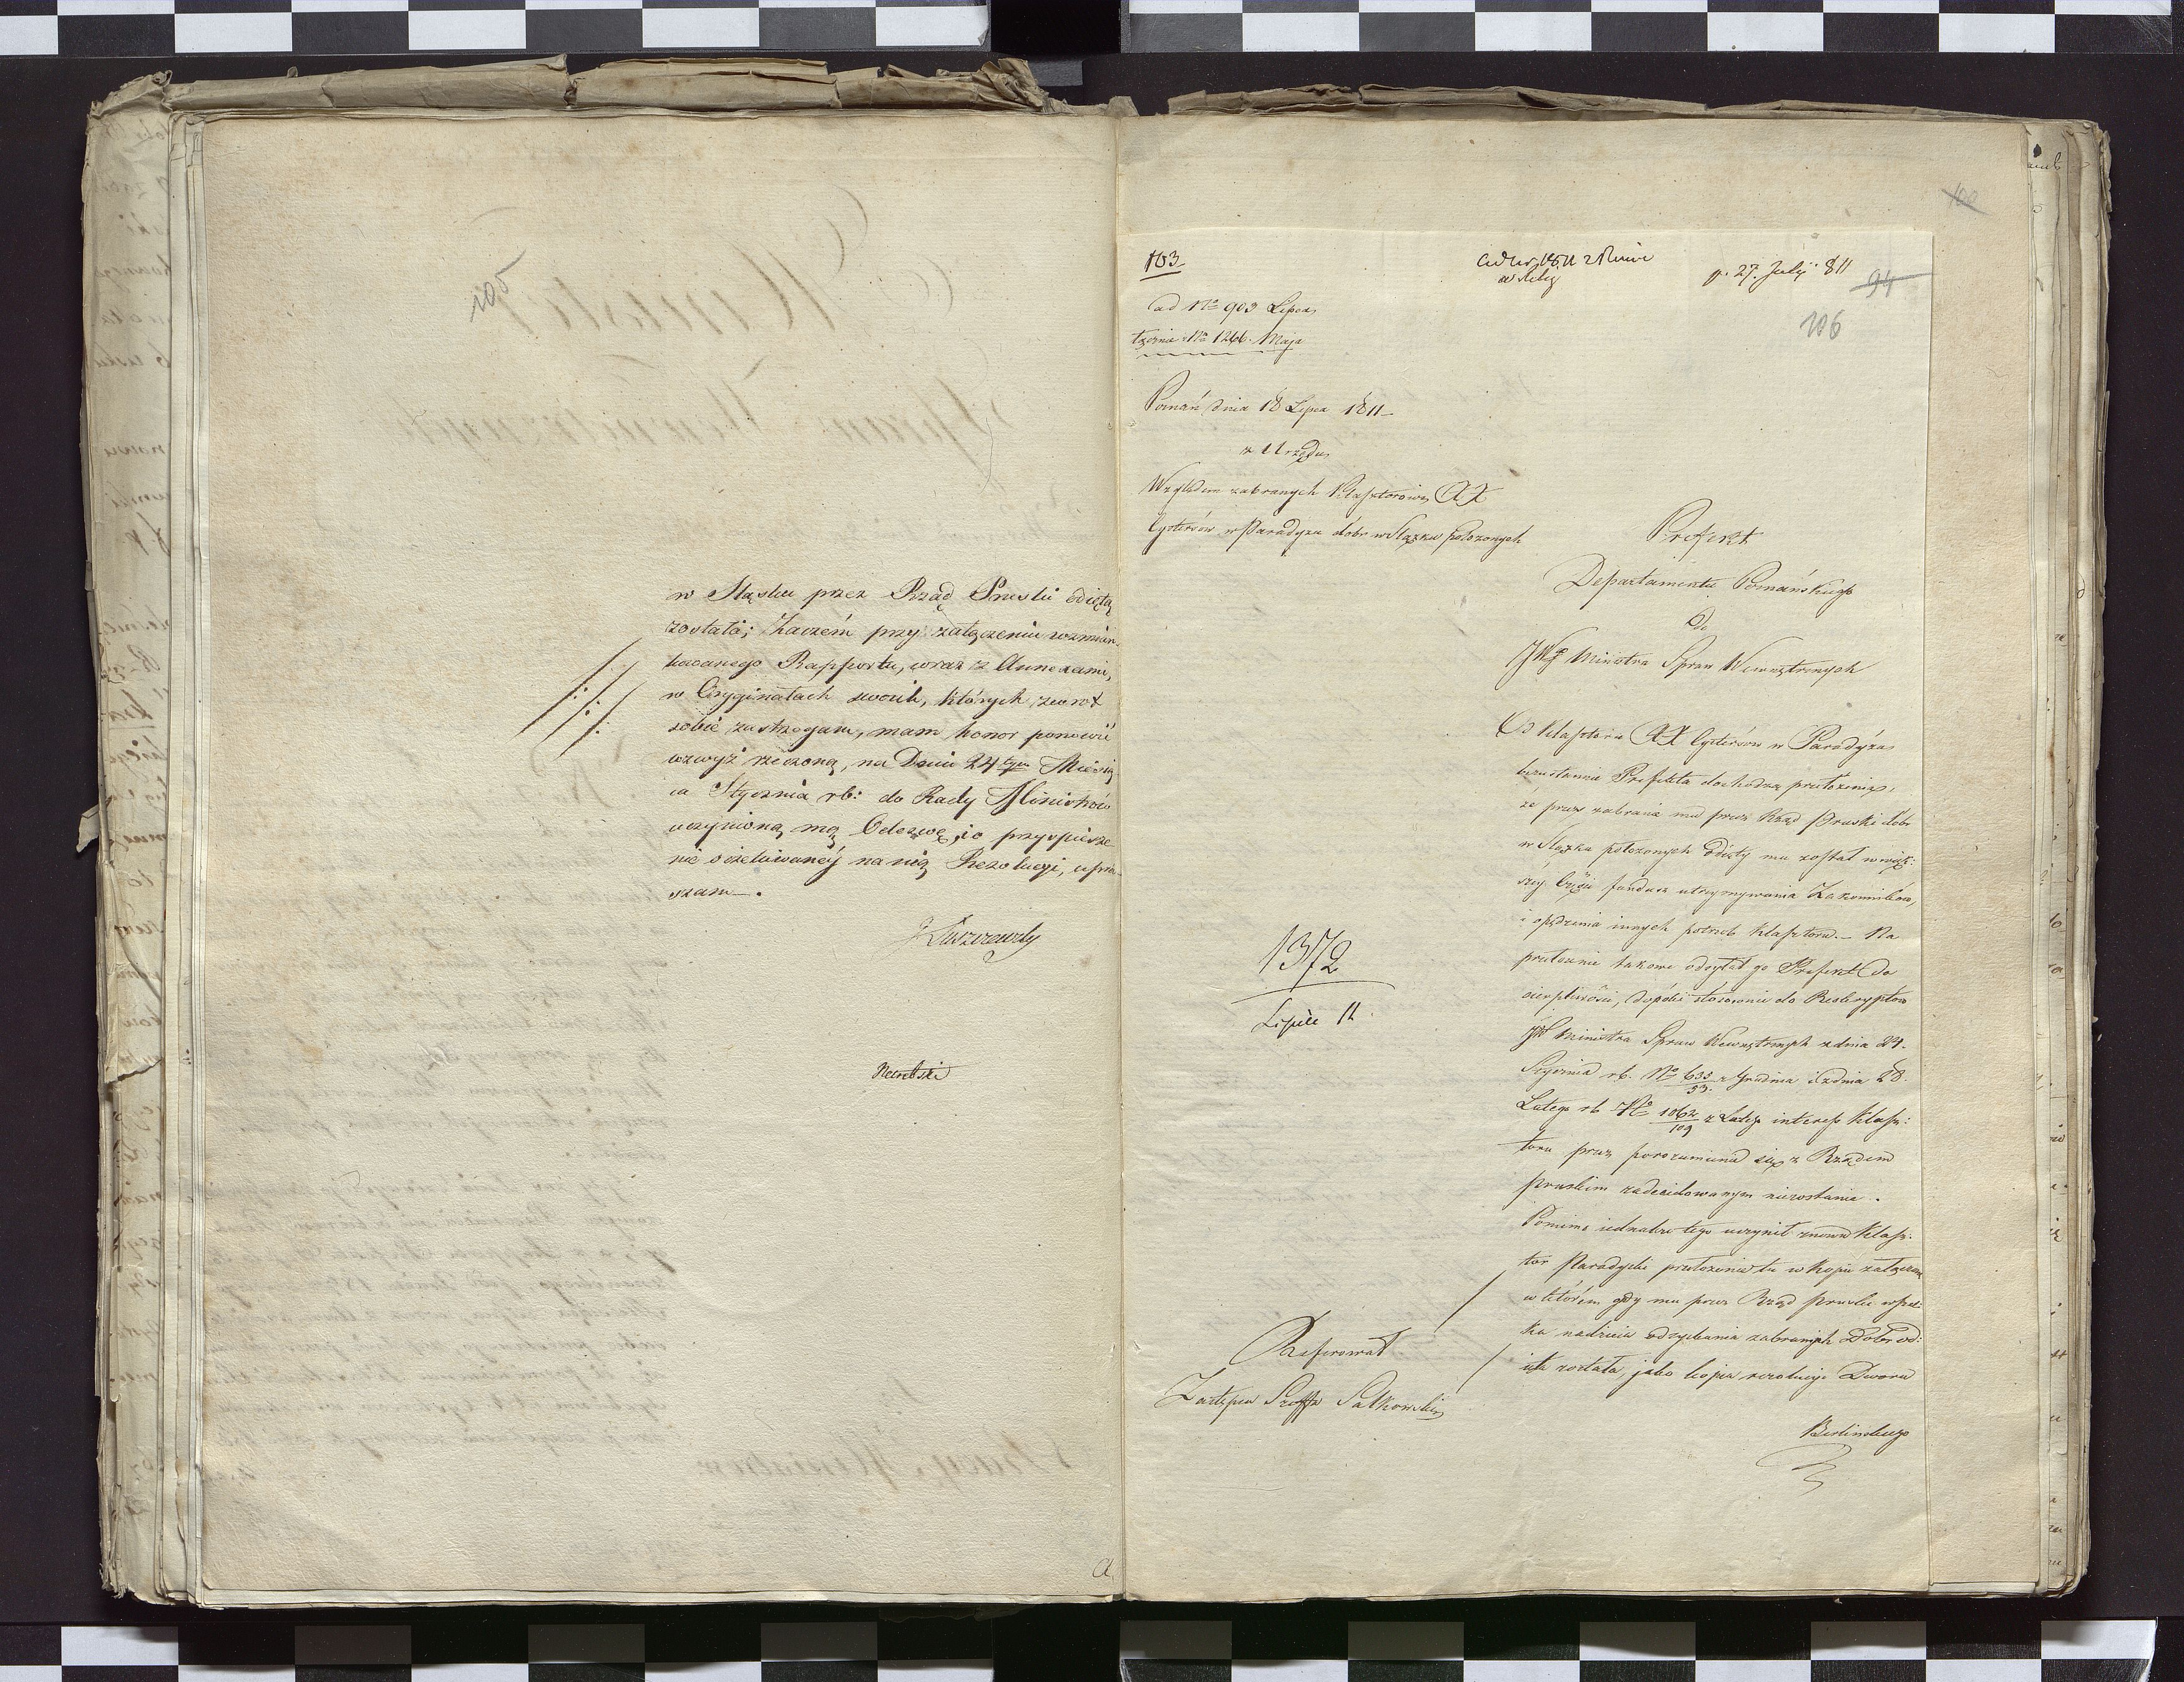 105
w Sląsku przez Rząd Pruski odiętą
została; Zaczém przy załączeniu wzmian-
kowanego Rapportu, wraz z Annexami,
w Oryginałach swoich, których zwrot
sobie zastrzegam, mam honor ponowić
wzwyż rzeczoną, na Dniu 24tym Miesią-
ca Stycznia rb: do Rady Ministrów
uczynioną mą Odezwę, i o przyspiesze-
nie oczekiwanéy na nią Rezolucyi, upra-
szam.
J Łuszczewski
Karębski
a
100
103
p. 27. July 811
94
106
ad No 903 Lipca
No 1266. Maja
Poznań dnia 18 Lipca 1811
z Urzędu
Względem zabranych Klasztorowi XX
Cystersów w Paradyżu dóbr w Sląsku położonych
Prefekt
Departamentu Poznańskiego
do
JWgo Ministra Spraw Wewnętrznych
Od Klasztoru XX Cystersów w Paradyżu
bezustannie Prefekta dochodzą przełożenia,
że przez zabranie mu przez Rząd Pruski dóbr
w Sląsku położonych odięty mu został w więk:
széy części fundusz utrzymywania Zakonników,
i opędzenia innych potrzeb klasztoru. – Na
przełożenie takowe odsyłał go Prefekt do
cierpliwości, dopóki stósownie do Reskryptów
JW Ministra Spraw Wewnętrznych z dnia 24.
Stycznia rb. No 635/53. z Grudnia i z dnia 28.
Lutego rb No 1062/109 z Lutego interess Klasz:
toru przez porozumienie się z Rządem
pruskim zadecidowanym niezostanie.
Pomimo iednakże tego uczynił znowu Klasz:
tor Paradyski przełożenie tu w kopii załączone
w którém gdy mu przez Rząd Pruski wszel:
ka nadzieia odzyskania zabranych Dóbr od:
ięta została, jako kopia rezolucyi Dworu
Berlinskiego
1372
Lipiec 11.
Referował
Zastępca Szeffa Sułkowski